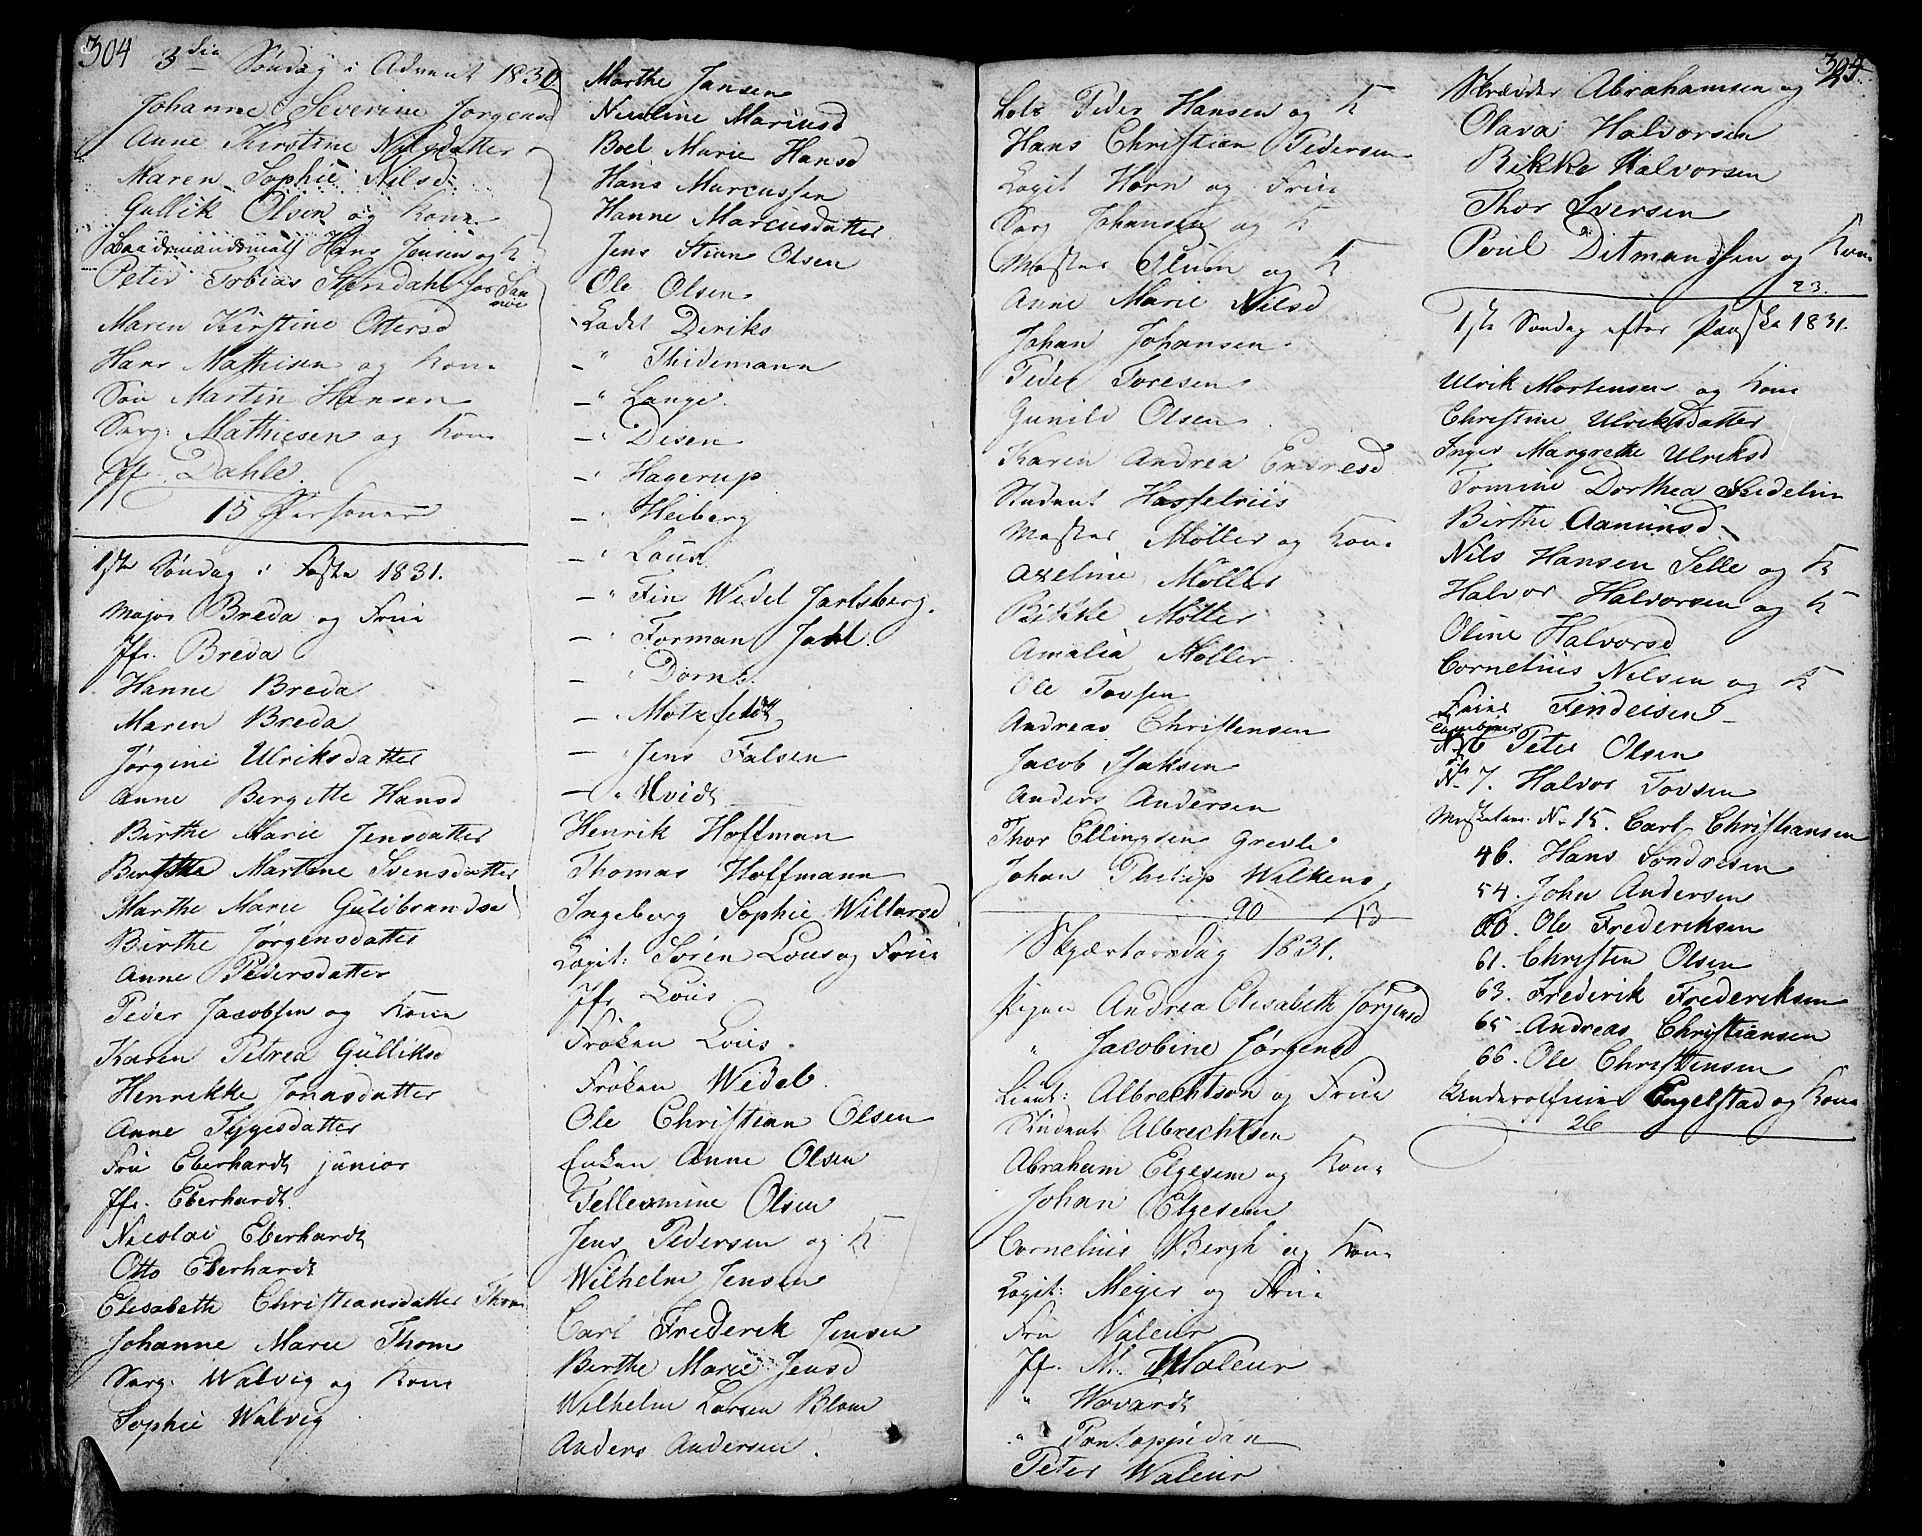 304
3die Søndag i Advent 1830
Johanne Severine Jørgensd
Anne Kirstine Nilsdatter
Maren Sophie Nilsd:
Gullik Olsen og Kone
Baadsmandsmath Hans Jensen og K
Peter Tobias Stensdahl
Maren Kirstine Ottersd
Hans Mathisen og Kone
Søn Martin Hansen
Serg: Mathiesen og Kone
Jfr. Dahle.
15 Personer
1ste Søndag i Faste 1831.
Major Breda og Frue
Jfr. Breda
Hanne Breda
Maren Breda
Jørgine Ulriksdatter
Anne Bergitte Hansd
Birthe Marie Jensdatter
Berthe Martine Svensdatter
Marthe Marie Guldbrandsd
Birthe Jørgensdatter
Anne Pedersdatter
Peder Jacobsen og Kone
Karen Petrea Gulliksd
Henrikke Jonasdatter
Anne Tygesdatter
Fru Eberhardt junior
Jfr. Eberhardt
Nicolai Eberhardt
Otto Eberhardt
Elisabeth Christiansdatter Thom
Johanne Marie Thom
Serg: Walvig og Kone
Sophie Walvig
Marthe Jansen
Nicoline Mariusd
Boel Marie Hansd
Hans Marcussen
Hanne Marcusdatter
Jens Stian Olsen
Ole Olsen
Cadet Deriks
— " Thidemann
— " Lange.
— " Disen
— " Hagerup
— " Heiberg
— " Lous
— " Fin Wedel Jarlsberg.
— " Forman Juhl.
— " Dorne
— " Motzfeldt
— " Jens Falsen
— " Hvidt
Henrik Hoffman
Thomas Hoffmann
Ingeborg Sophie Willarsd
Capit: Søren Lous og Frue
Jfr Lous
Frøken Lous.
Frøken Wedel.
Ole Christian Olsen
Enken Anne Olsen
Tellesmine Olsen
Jens Pedersen og K
Wilhelm Jensen
Carl Frederik Jensen
Birthe Marie Jensd
Wilhelm Larsen Blom
Anders Andersen.
Lods Peder Hansen og K
Hans Christian Pedersen
Capit Horn og Frue
Serg Johansen og K
Mester Plum og K
Anne Marie Nilsd
Johan Johansen
Peder Toresen
Gunild Olsen
Karen Andrea Endresd
Student Hasselriis
Mester Møller og Kone
Axeline Møller
Rikke Møller
Amalia Møller
Ole Tovsen
Andreas Christensen
Jacob Isaksen
Anders Andersen
Thor Ellingsen Grevle
Johan Philip Wilkens
90 / 13
Skjærtorsdag 1831.
Pigen Andrea Elisabeth Jørgensd
" Jacobine Jørgensd
Lieut: Albrechtson og Frue
Student Albrechtsen
Abraham Elgesem og Kone
Johan Elgesem
Cornelius Bergh og Kone
Capit: Meyer og Frue
Fru Valeur
Jfr. M. Waleur
" Wovardt
" Pontoppidan
Peter Waleur
304.
Skrædder Abrahamsen og K
Olava Halvorsen
Rikke Halvorsen
Thor Iversen
Poul Ditmandsen og Kone
23.
1ste Søndag efter Paaske 1831.
Ulrik Mortensen og Kone
Christine Ulriksdatter
Inger Margrethe Ulriksd
Tomine Dorthea Seidelin
Birthe Aamunsd
Nils Hansen Selle og K
Halvor Halvorsen og K
Oline Halvorsd
Cornelius Nilsen og K
Findeisen
No 6 Peter Olsen
No 7. Halvor Tovsen
No 15. Carl Christiansen
46. Hans Sondresen
54. John Andersen
60. Ole Frederiksen
61. Christen Olsen
63. Frederik Frederiksen
65. Andreas Christiansen
66. Ole Christensen
Underofficier Engelstad og Kone
26